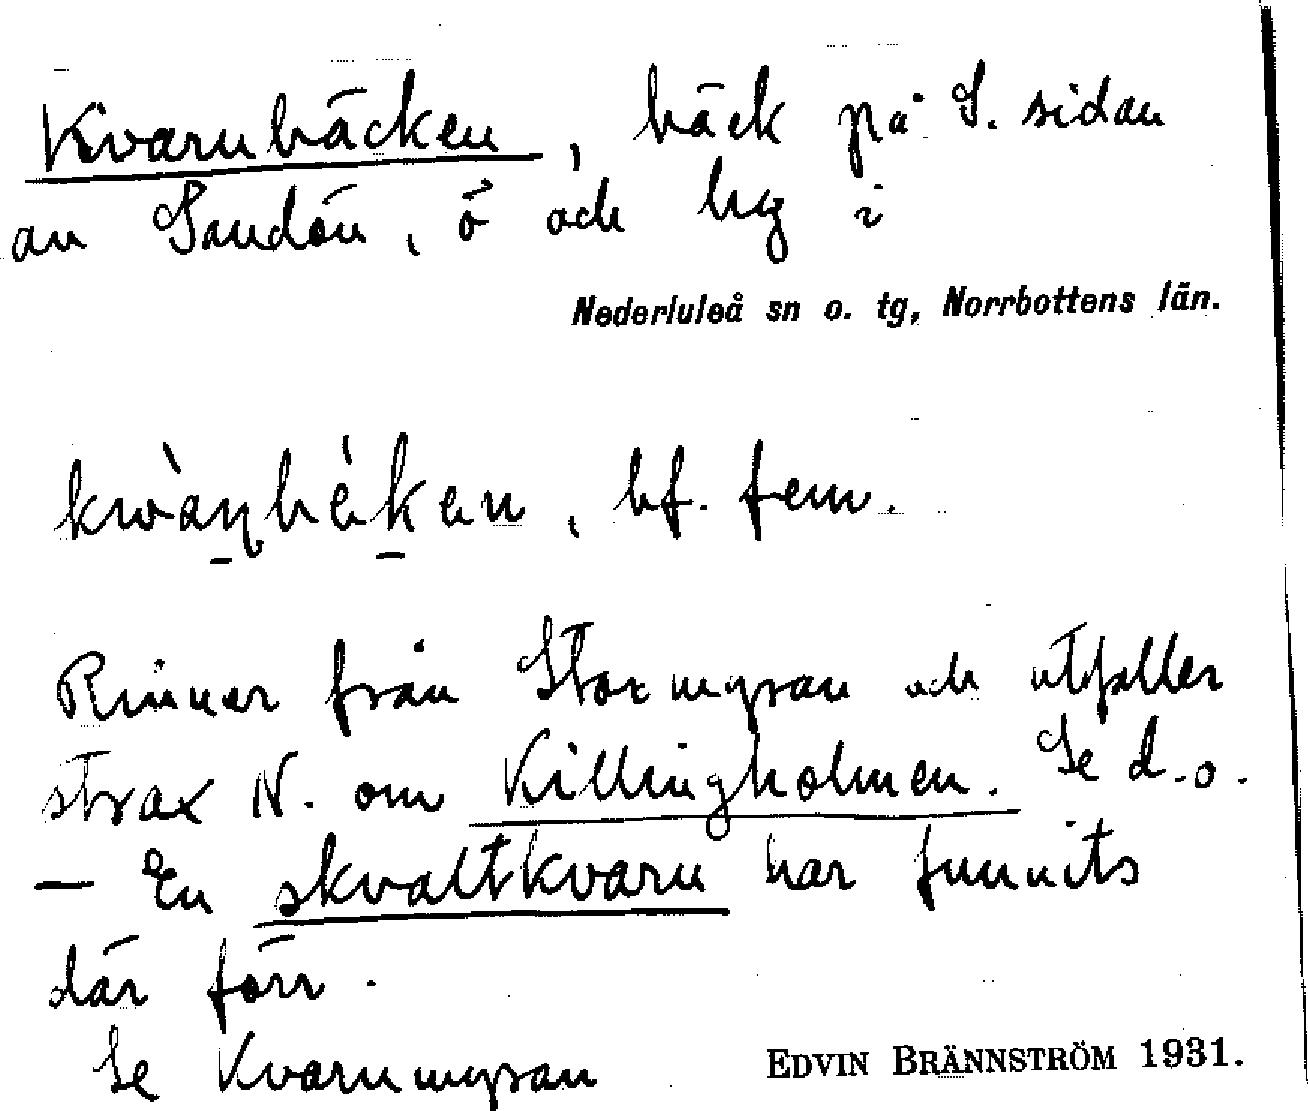 Kvarnbäcken, bäck på S. sidan
av Sandön, ö och by i
Nederluleå sn o. tg, Norrbottens län.
kwàṇbèken, bf. fem.
Rinner från Stormyran och utfaller
strax N. om Killingholmen. Se d.o.
— En skvaltkvarn har funnits
där förr.
Se Kvarnmyran
EDVIN BRÄNNSTRÖM 1931.